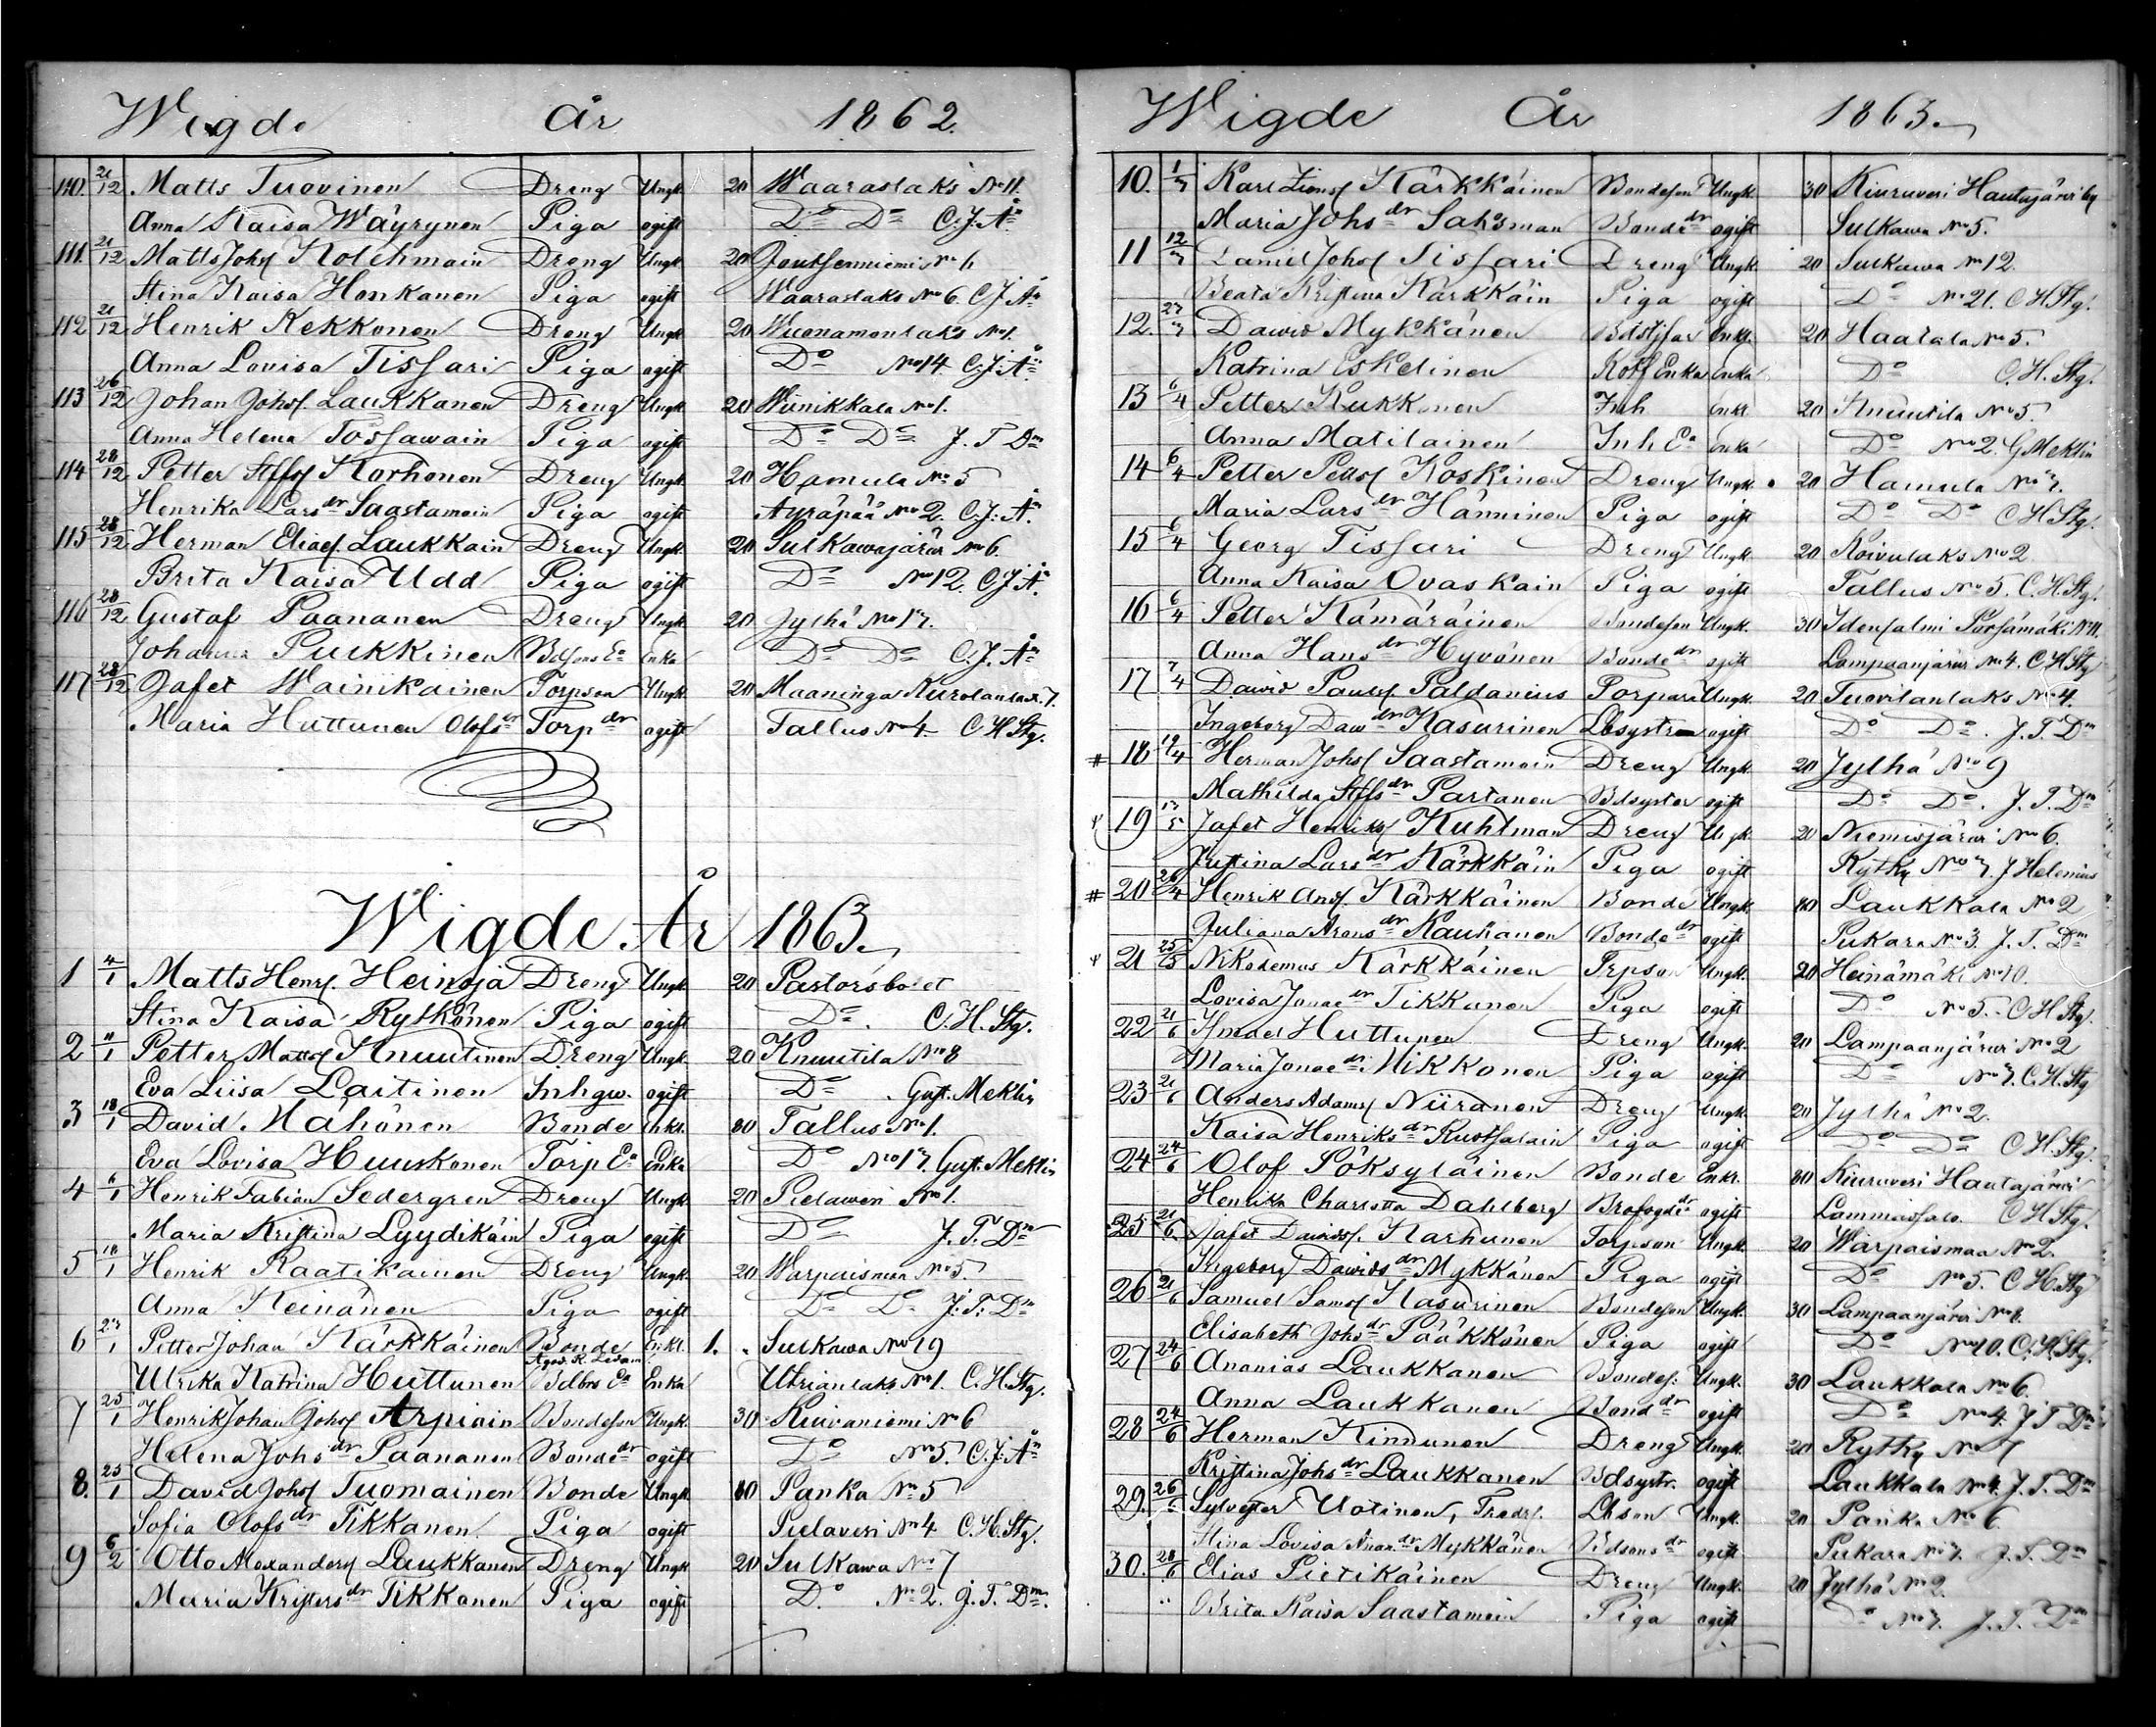 Wigde År 1862.
110. 21/12 Matts Tuovinen Dreng Ungk. 20 Waaraslaks No 11.
Anna Kaisa Wäyrynen Piga ogift Do Do C.J.Ån
111. 21/12 Matts Johsf Kolehmain Dreng Ungk. 20 Joutsenniemi No 6
Stina Kaisa Honkanen Piga ogift Waaraslaks No 6. C.J.Ån
112 21/12 Henrik Kekkonen Dreng Ungk 20 Wuonamonlaks No 1.
Anna Lovisa Tissari Piga ogift Do No 14 C.J.Ån
113 26/12 Johan Johsf. Laukkanen Dreng Ungk. 20 Winikkala No 1.
Anna Helena Tossawain Piga ogift Do Do J. T. Dm
114 28/12 Petter Stffsf Korhonen Dreng Ungk. 20 Hamula No 5
Henrika Larsdr Saastamoin Piga ogift Äyräpää No 2. C.J.Ån
115 28/12 Herman Eliaef. Laukkain Dreng Ungk. 20 Sulkawajärwi No 6.
Brita Kaisa Udd Piga ogift Do No 12. C.J.Ån
116 28/12 Gustaf Paananen Dreng Ungk. 20 Jylhä No 17.
Johanna Purkkinen Bdsons Ea Enka Do Do C.J.Ån
117 28/12 Jafet Wainikainen Torpson Ungk. 20 Maaninga Kurolanlaks 7.
Maria Huttunen Olofsdr Torpdr ogift Tallus No 4 C H Stg.
Wigde År 1863.
1 4/1 Matts Henrf. Heinoja Dreng Ungk. 20 Pastorsbolet
Stina Kaisa Rytkönen Piga ogift Do C.H.Stg.
2 11/1 Petter Mattsf Knuutinen Dreng Ungk. 20 Knuutila No 8
Eva Liisa Laitinen Inhgw. ogift Do Gust. Meklin
3 18/1 David Mähönen Bonde Enkl. 80 Tallus No 1.
Eva Lovisa Huuskonen Torp Ea Enka Do No 17. Gust. Meklin
4 6/1 Henrik Fabian Sedergren Dreng Ungk. 20 Pielawesi No 1.
Maria Kristina Lyydikäin Piga ogift Do J. T. Dm
5 18/1 Henrik Raatikainen Dreng Ungk. 20 Warpaismaa No 5.
Anna Keinänen Piga ogift Do Do J. T. Dm
6 23/1 Petter Johan Kärkkäinen Bonde Enkl. 1. Sulkawa No 19
Ulrika Katrina Huttunen Bdbrs Ea Enka Utrianlaks No 1. C.H.Stg.
7 25/1 Henrik Johan Johsf Arpiain Bondeson Ungk. 30 Kuivaniemi No 6
Helena Johsdr Paananen Bondedr ogift Do No 5. C.J.Ån
8. 25/1 David Johsf Tuomainen Bonde Ungk. 80 Panka No 5
Sofia Olofsdr Tikkanen Piga ogift Pielavesi No 4 C.H.Stg.
9 6/2 Otto Alexandersf Laukkanen Dreng Ungk 20 Sulkawa No 7
Maria Kristersdr Tikkanen Piga ogift Do No 2. J. T. Dm.
Wigde År 1863.
10. 1/3 Karl Kärkkäinen Bondeson Ungk. 30 Kiuruvesi Hautajärvi by
Maria Johsdr Sahsman Bondedr ogift Sulkawa No 5.
11 12/3 Daniel Johsf Tissari Dreng Ungk. 20 Sulkawa No 12.
Beata Kristina Kärkkäin Piga ogift Do No 21. C.H.Stg.
12. 27/3 Dawid Mykkänen Enkl. 20 Haatala No 5.
Katrina Eskelinen Enka Enka Do C.H.Stg.
13 6/4 Petter Kukkonen Inh Enkl 20 Knuutila No 5.
Anna Matilainen Inh Ea Enka Do No 2. G Meklin
14 6/4 Petter Pettsf Koskinen Dreng Ungk. 20 Hamula No 7.
Maria Larsdr Hänninen Piga ogift Do Do C H Stg.
15 6/4 Georg Tissari Dreng Ungk. 20 Koivulaks No 2
Anna Kaisa Ovaskain Piga ogift Tallus No 5. C.H.Stg.
16 6/4 Petter Kämäräinen Bondeson Ungk. 30 Idensalmi Porsämäki No 11.
Anna Hansdr Hyvönen Bondedr ogift Lampaanjärwi No 4. C H Stg
17 7/4 Dawid Paulsf Paldanius Torpari Ungk. 20 Tuovilanlaks No 4.
Ingeborg Dawdr Kasurinen Lbsystr ogift Do Do. J. T. Dm
# 18 19/4 Herman Johsf Saastamoin Dreng Ungk. 20 Jylhä No 9
Mathilda Stffsdr Partanen Bdsyster ogift Do Do. J. T. Dm
19 17/5 Jafet Henriksf Kuhlman Dreng Ungk. 20 Niemisjärwi No 6.
Kristina Larsdr Kärkkäin Piga ogift Rytky No 7. J Helenius
# 20 26/4 Henrik Andf. Kärkkäinen Bonde Ungk. 80 Laukkala No 2
Juliana Aronsdr Kauhanen Bondedr ogift Pukara No 3. J. T. Dm
21 25/5 Nikodemus Kärkkäinen Trpson Ungk. 20 Heinämäki No 10.
Lovisa Jonaedr Tikkanen Piga ogift Do No 5. C H Stg.
22 21/6 Ismael Huttunen Dreng Ungk. 20 Lampaanjärwi No 2
Maria Jonaedr Mikkonen Piga ogift Do No 7. C.H.Stg
23 21/6 Anders Adamsf Niiranen Dreng Ungk. 20 Jylhä No 2.
Kaisa Henriksdr Ruotsalain Piga ogift Do Do C H.Stg.
24 24/6 Olof Pöksyläinen Bonde Enkl. 80 Kiuruvesi Hautajärwi
Henrika Charlotta Dahlberg Brofogdedr ogift Lammassalo. C H Stg.
25 21/6 Jafet Davidsf. Karhunen Torpson Ungk. 20 Warpaismaa No 2.
Ingeborg Davidsdr Mykkänen Piga ogift Do No 5. C H.Stg
26 21/6 Samuel Samsf Kasurinen Bondeson Ungk. 30 Lampaanjärwi No 8.
Elisabeth Johsdr Pääkkönen Piga ogift Do No 10. C.H.Stg.
27 24/6 Ananias Laukkanen Bondes. Ungk. 30 Laukkala No 6.
Anna Laukkanen Bonddr ogift Do No 4. J T Dm
28 24/6 Herman Kinnunen Dreng Ungk. 20 Rytky No 7
Kristina Johsdr Laukkanen Bdsystr. ogift Laukkala No 4. J. T. Dm
29. 26/6 Sylvester Uotinen, Fredrs. Lbson Ungk. 20 Panka No 6.
Stina Lovisa Mykkänen Bdsonsdr ogift Pukara No 7. J. T. Dm
30. 28/6 Elias Pietikäinen Dreng Ungk. 20 Jylhä No 2.
Brita Kaisa Saastamoin Piga ogift Do No 7. J. T. Dm